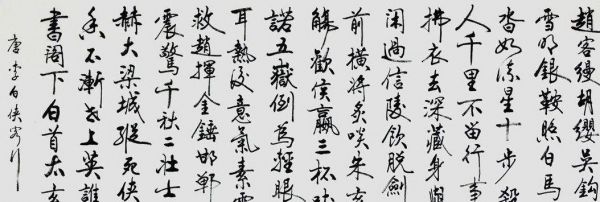 趙客縵胡纓吳鉤
雪明銀鞍照白馬
沓如流星十步殺
人千里不留行事
拂衣去深藏身與
閑過信陵飲脫劍
前橫將炙啖朱亥
觴勸侯嬴三杯吐
諾五嶽倒為輕眼
耳熱後意氣素霓
救趙揮金錘邯鄲
震驚千秋二壯士
赫大梁城縱死俠
香不慚世上英誰
書閣下白首太玄
唐李白俠客行